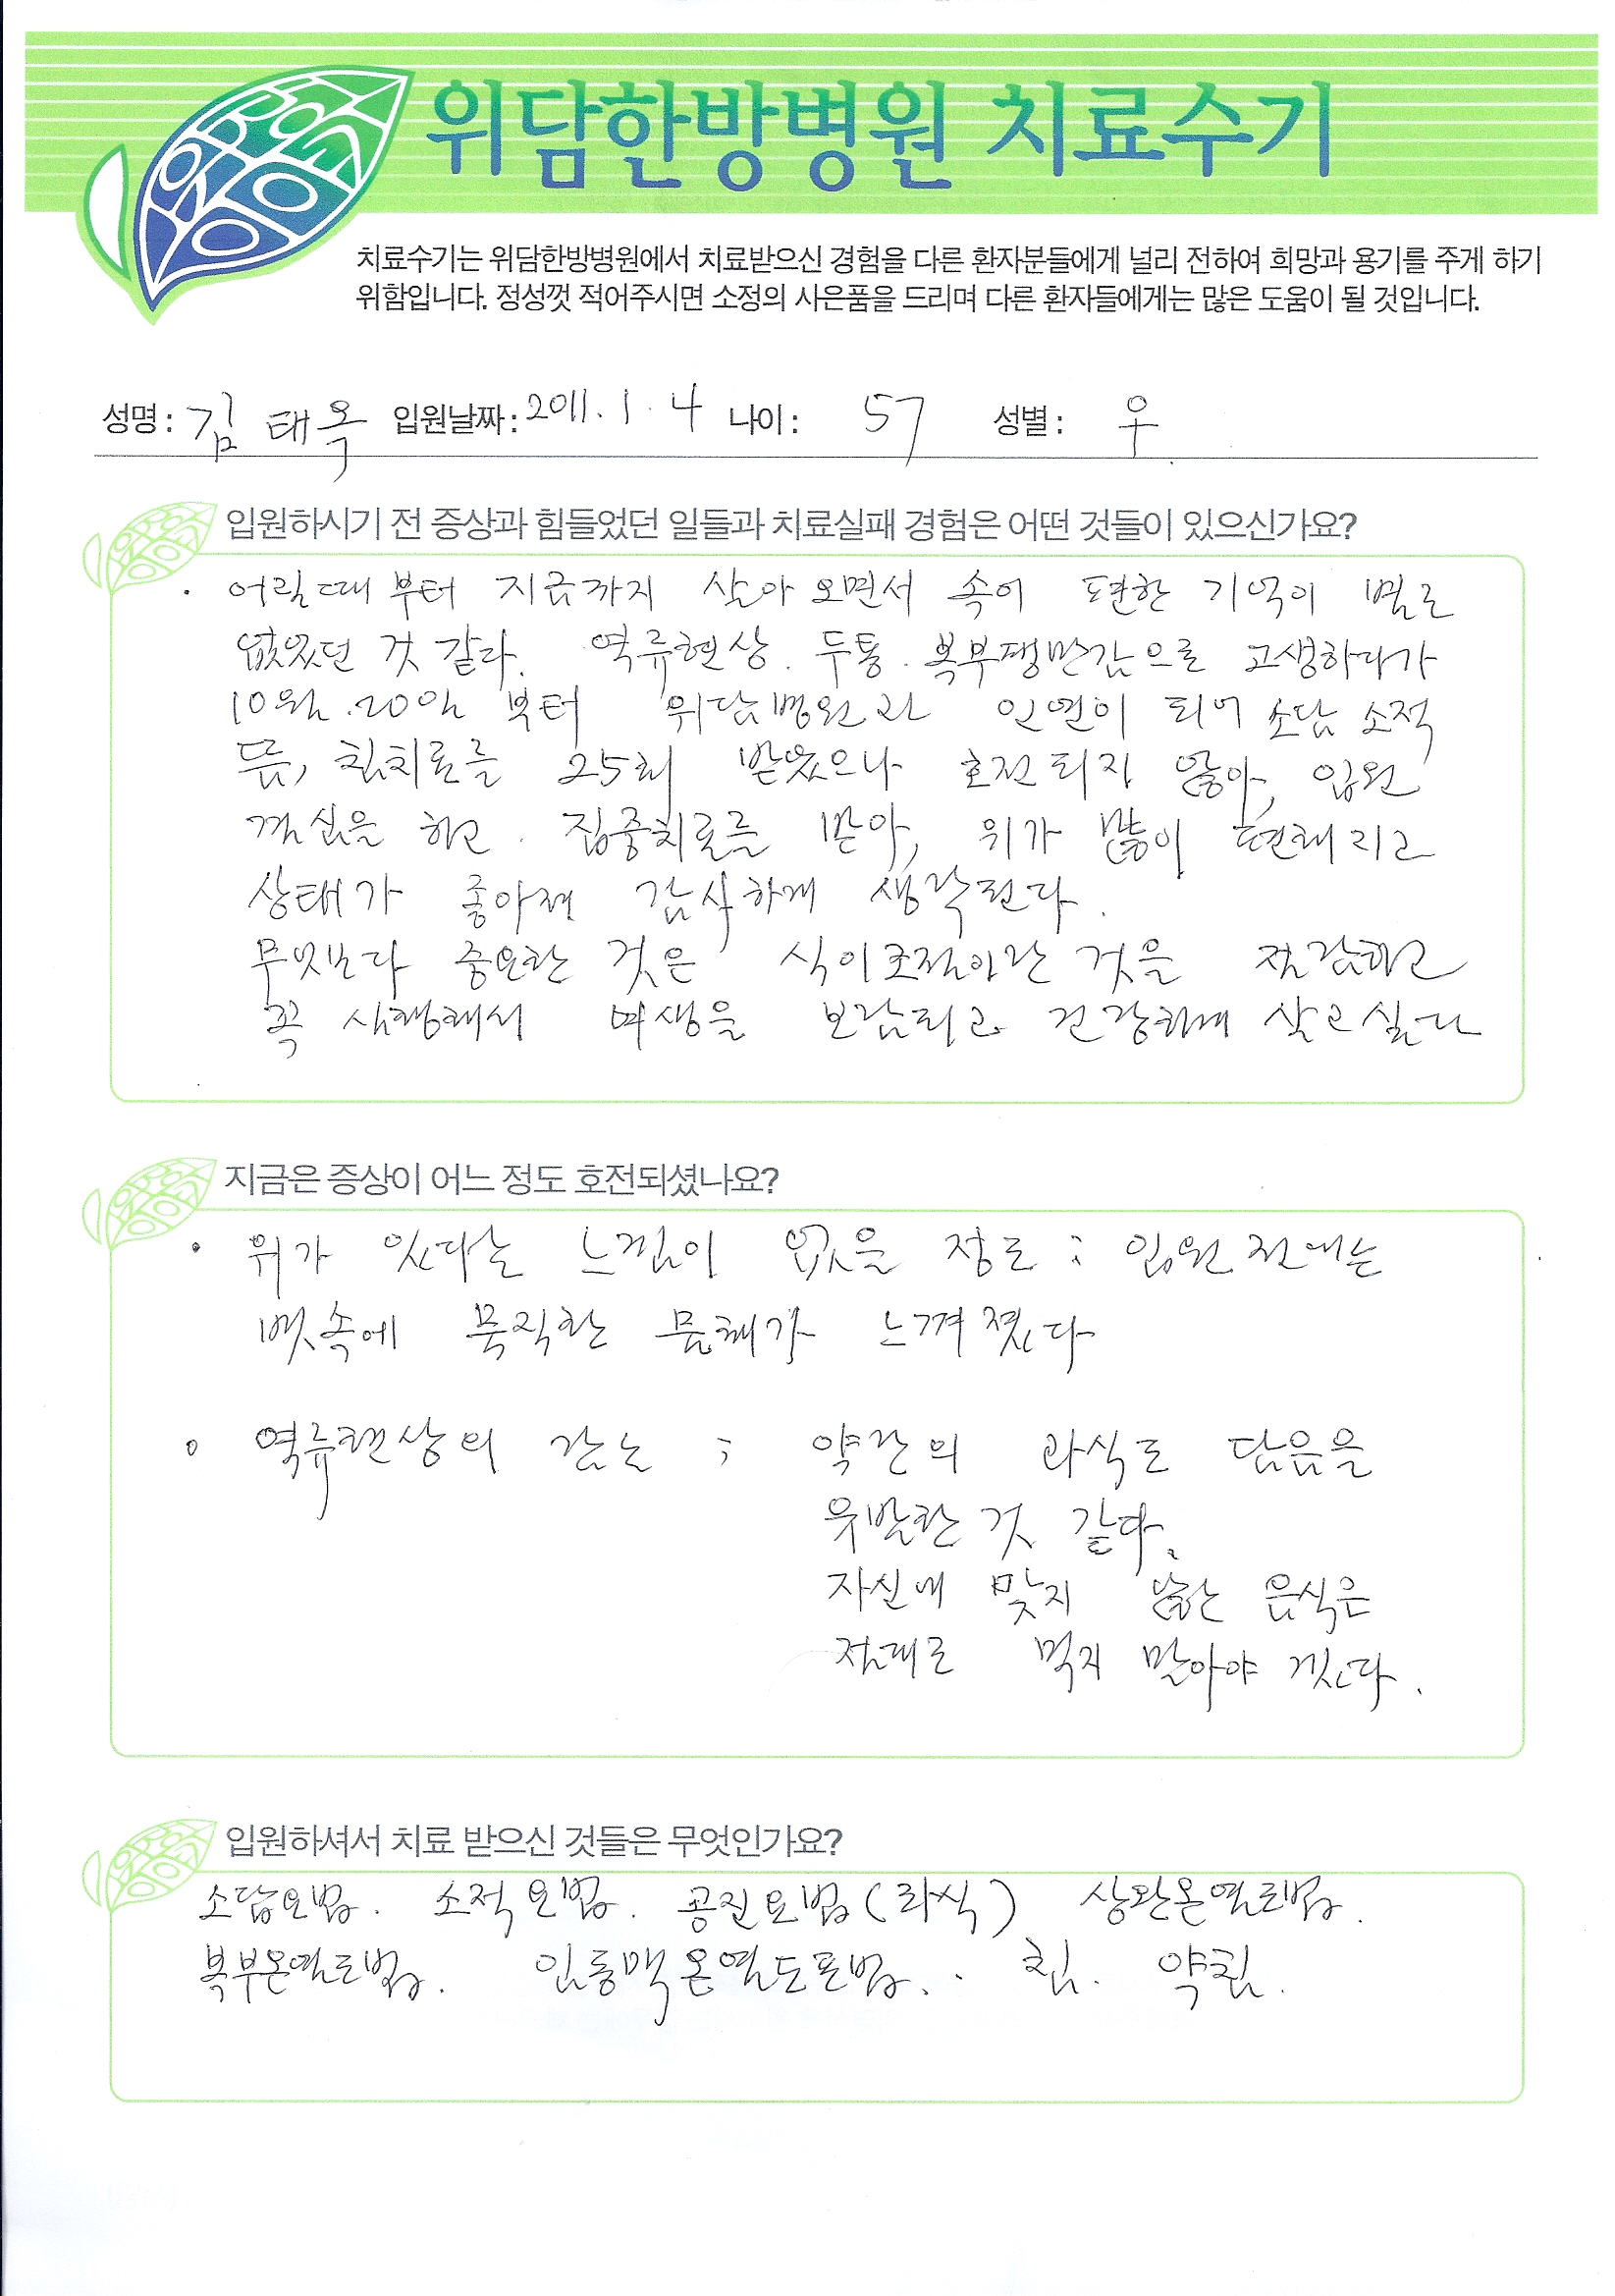 위담한방병원 치료수기
치료수기는 위담한방병원에서 치료받으신 경험을 다른 환자분들에게 널리 전하여 희망과 용기를 주게 하기
위함입니다. 정성껏 적어주시면 소정의 사은품을 드리며 다른 환자들에게는 많은 도움이 될 것입니다.
성명 : 김 태옥 입원날짜 : 2011. 1. 4 나이 : 57 성별 :
입원하시기 전 증상과 힘들었던 일들과 치료실패 경험은 어떤 것들이 있으신가요?
· 어릴때 부터 지금까지 살아 오면서 속이 편한 기억이 별로
없었던 것 같다. 역류현상. 두통. 복부팽만감으로 고생하다가
10월.20일 부터 위담병원과 인연이 되어 소담 소적
뜸, 침치료를 25회 받았으나 호전되지 않아, 입원
결심을 하고. 집중치료를 받아, 위가 많이 편해지고
상태가 좋아져 감사하게 생각된다.
무엇보다 중요한 것은 식이조절이란 것을 절감하고
꼭 실행해서 여생을 보람되고 건강하게 살고싶다
지금은 증상이 어느 정도 호전되셨나요?
· 위가 있다는 느낌이 없을 정도 : 입원 전에는
뱃속에 묵직한 물체가 느껴졌다
· 역류현상의 감소 ; 약간의 과식도 담음을
유발한 것 같다.
자신에 맞지 않는 음식은
절대로 먹지 말아야 겠다.
입원하셔서 치료 받으신 것들은 무엇인가요?
소담요법. 소적요법. 공진요법 (좌식) 상완온열요법.
복부온열요법. 인동맥온열도포법. 침. 약침.